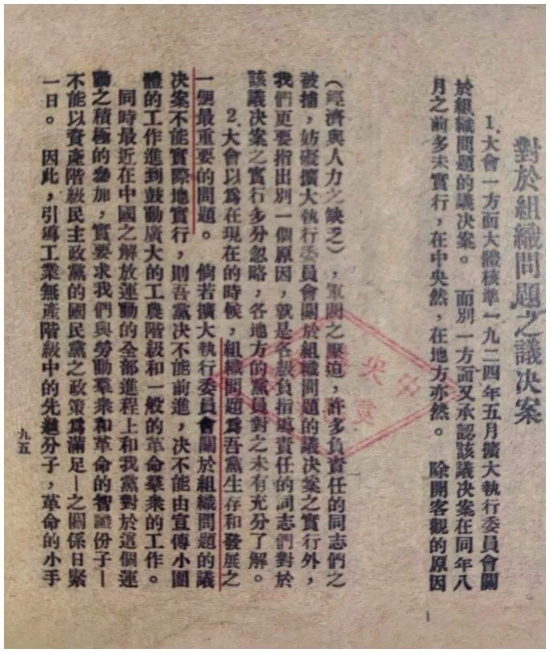 對於組織問題之議決案
1.大會一方面大體核準一九二四年五月擴大執行委員會關
於組織問題的議決案。 面別一方面又承認該議決案在同年八
月之前多未實行，在中央然，在地方亦然。 除開客觀的原因
（經濟與人力之缺乏），軍閥之壓迫，許多負責任的同志們之
被捕，妨礙擴大執行委員會關於組織問題的議決案之實行外，
我們更要指出別一個原因，就是各級負指導責任的同志們對於
該議決案之實行多分忽略，各地方的黨員對之未有充分了解。
2.大會以爲在現在的時候，組織問題爲吾黨生存和發展之
一個最重要的問題。 倘若擴大執行委員會關於組織問題的議
決案不能實際地實行，則吾黨决不能前進，决不能由宣傳小團
體的工作進到鼓動廣大的工農階級和一般的革命羣衆的工作。
同時最近在中國之解放運動的全部進程上和我黨對於這個運
動之積極的參加，實要求我們與勞動羣衆和革命的智識份子—
不能以資產階級民主政黨的國民黨之政策爲滿足—之關係日緊
一日。 因此，引導工業無產階級中的先進分子，革命的小手
九五
央